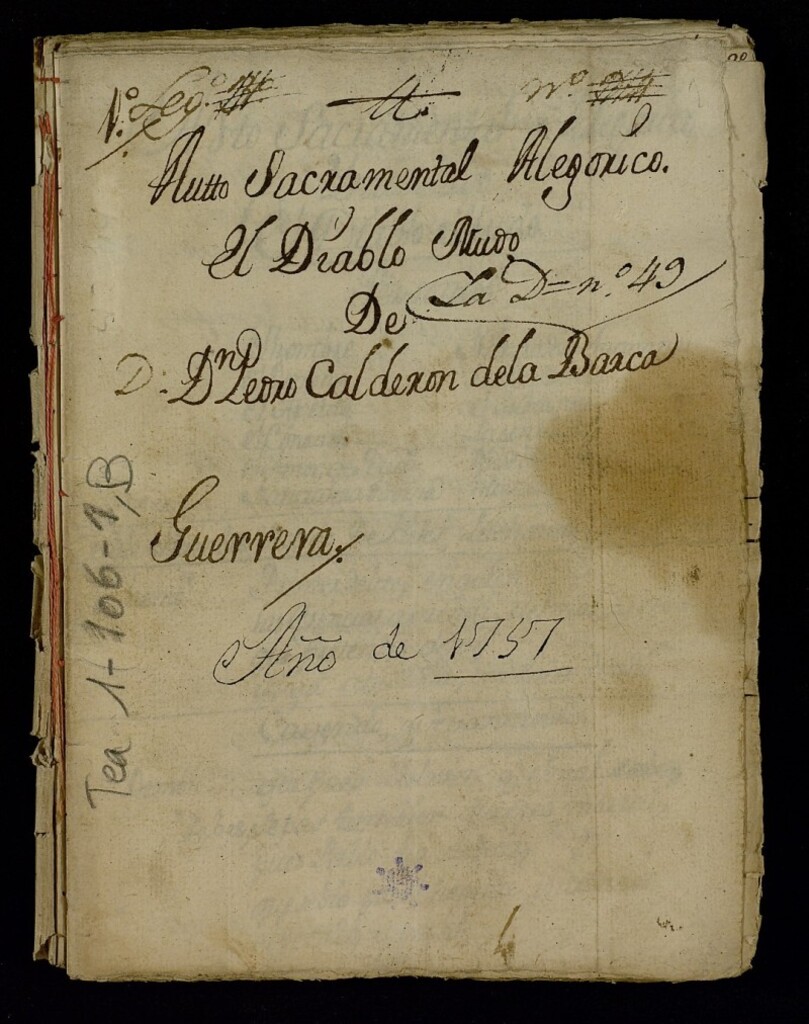 1.º Leg.º
Nº
Autto Sacramental Alegorico.
El Diablo Mudo
La D= nº 49
De
D. Dn Pedro Calderon dela Barca
Guerrera.
Año de 1757
Tea 1-106-1, B